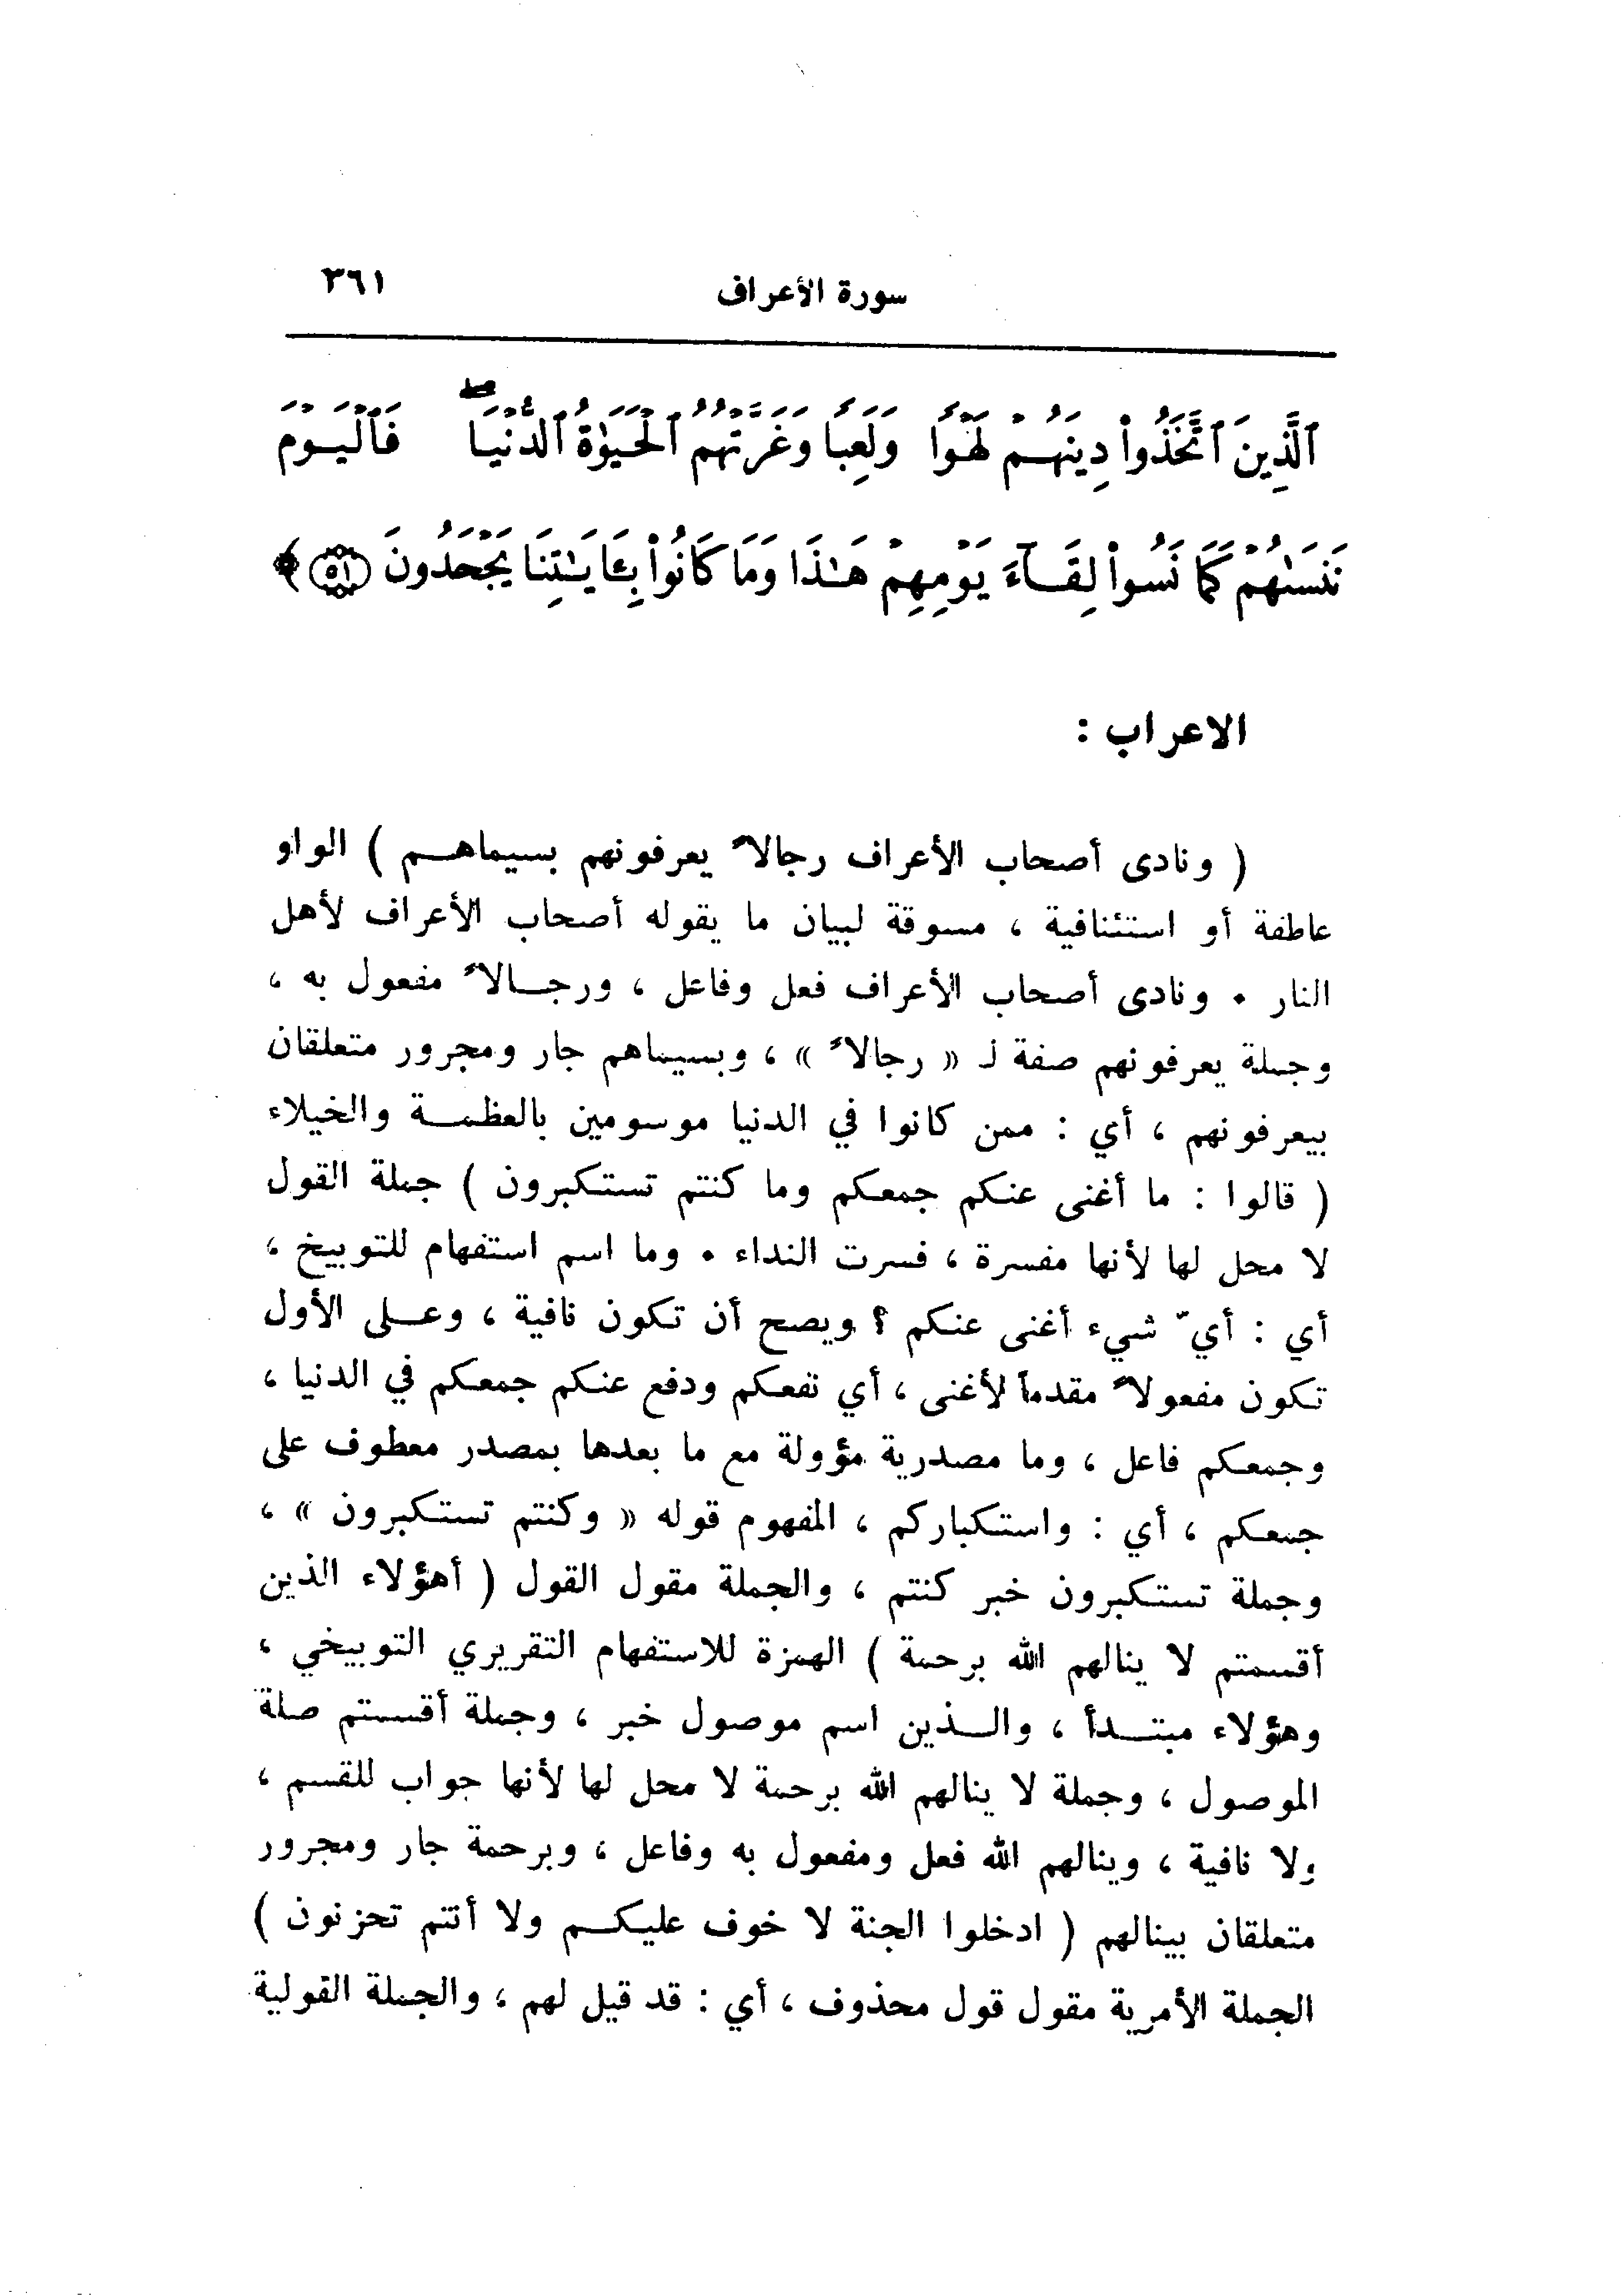 سورة الأعراف ٣٦١
ٱلَّذِينَ ٱتَّخَذُوا۟ دِينَهُمْ لَهْوًا وَلَعِبًا وَغَرَّتْهُمُ ٱلْحَيَوٰةُ ٱلدُّنْيَا ۖ فَٱلْيَوْمَ
نَنسَىٰهُمْ كَمَا نَسُوا۟ لِقَآءَ يَوْمِهِمْ هَـٰذَا وَمَا كَانُوا۟ بِـَٔايَـٰتِنَا يَجْحَدُونَ ٥١ ﴾
الاعراب :
( ونادى أصحاب الأعراف رجالاً يعرفونهم بسيماهم ) الواو
عاطفة أو استئنافية ، مسوقة لبيان ما يقوله أصحاب الأعراف لأهل
النار . ونادى أصحاب الأعراف فعل وفاعل ، ورجالاً مفعول به ،
وجملة يعرفونهم صفة لـ « رجالاً » ، وبسيماهم جار ومجرور متعلقان
بيعرفونهم ، أي : ممن كانوا في الدنيا موسومين بالعظمة والخيلاء
( قالوا : ما أغنى عنكم جمعكم وما كنتم تستكبرون ) جملة القول
لا محل لها لأنها مفسرة ، فسرت النداء . وما اسم استفهام للتوبيخ ،
أي : أيّ شيء أغنى عنكم ؟ ويصح أن تكون نافية ، وعلى الأول
تكون مفعولاً مقدماً لأغنى ، أي نفعكم ودفع عنكم جمعكم في الدنيا ،
وجمعكم فاعل ، وما مصدرية مؤولة مع ما بعدها بمصدر معطوف على
جمعكم ، أي : واستكباركم ، المفهوم قوله « وكنتم تستكبرون » ،
وجملة تستكبرون خبر كنتم ، والجملة مقول القول ( أهؤلاء الذين
أقسمتم لا ينالهم الله برحمة ) الهمزة للاستفهام التقريري التوبيخي ،
وهؤلاء مبتدأ ، والذين اسم موصول خبر ، وجملة أقسمتم صلة
الموصول ، وجملة لا ينالهم الله برحمة لا محل لها لأنها جواب للقسم ،
ولا نافية ، وينالهم الله فعل ومفعول به وفاعل ، وبرحمة جار ومجرور
متعلقان بينالهم ( ادخلوا الجنة لا خوف عليكم ولا أنتم تحزنون )
الجملة الأمرية مقول قول محذوف ، أي : قد قيل لهم ، والجملة القولية